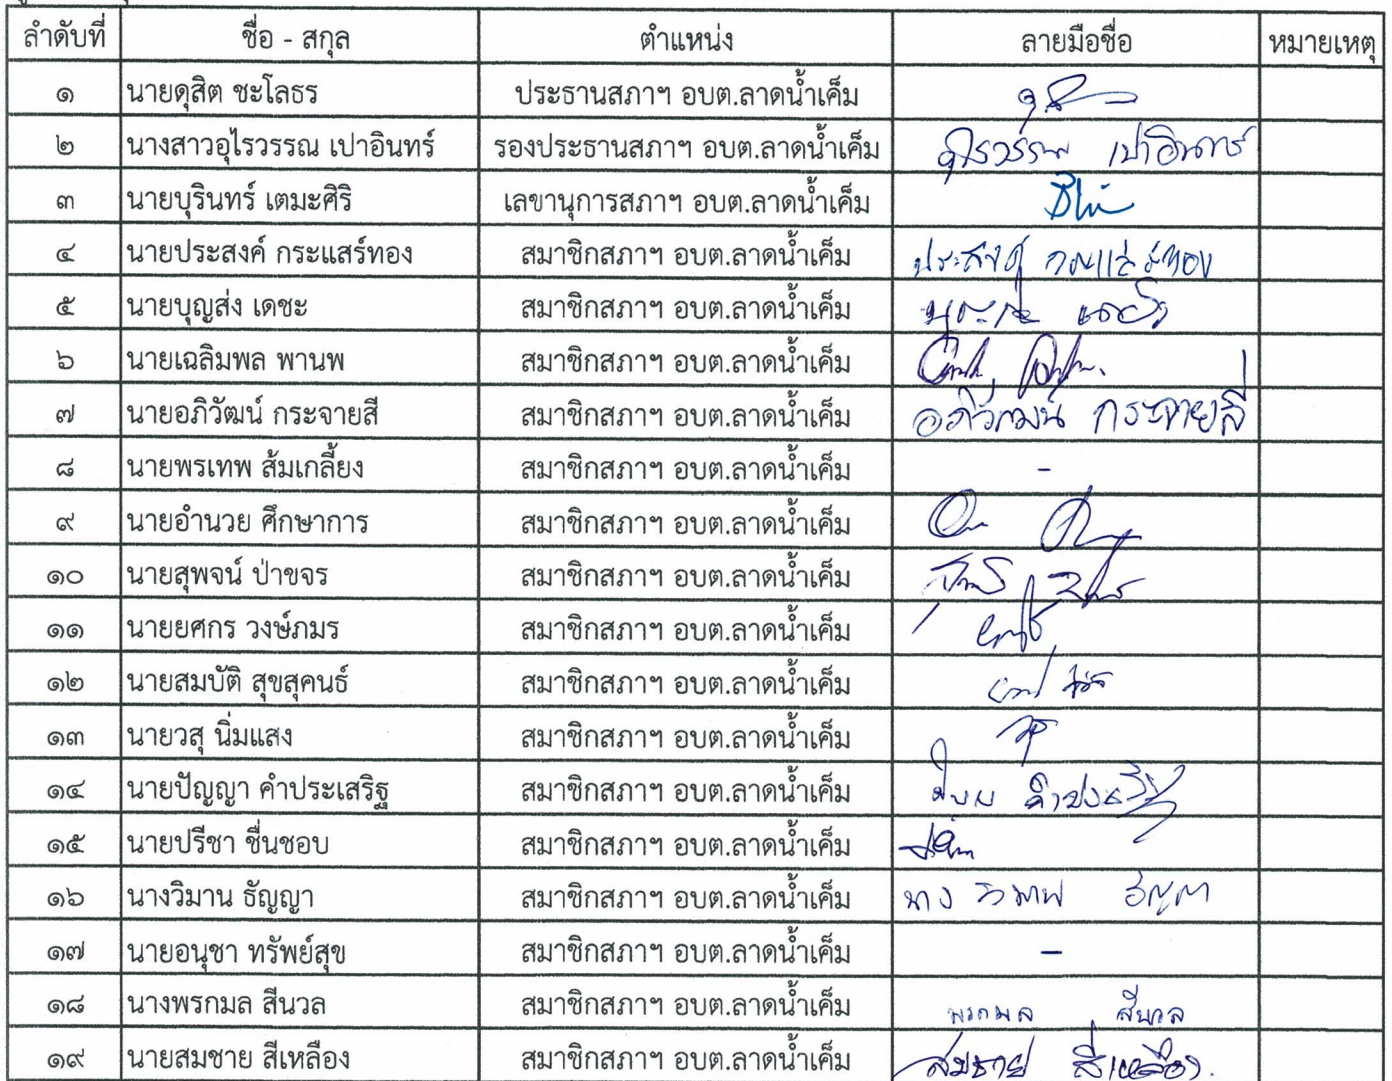 ลำดับที่ ชื่อ - สกุล ตำแหน่ง ลายมือชื่อ หมายเหตุ
๑ นายดุสิต ชะโลธร ประธานสภาฯ อบต.ลาดน้ำเค็ม
๒ นางสาวอุไรวรรณ เปาอินทร์ รองประธานสภาฯ อบต.ลาดน้ำเค็ม อุไรวรรณ เปาอินทร์
๓ นายบุรินทร์ เตมะศิริ เลขานุการสภาฯ อบต.ลาดน้ำเค็ม
๔ นายประสงค์ กระแสร์ทอง สมาชิกสภาฯ อบต.ลาดน้ำเค็ม ประสงค์ กระแสร์ทอง
๕ นายบุญส่ง เดชะ สมาชิกสภาฯ อบต.ลาดน้ำเค็ม
๖ นายเฉลิมพล พานพ สมาชิกสภาฯ อบต.ลาดน้ำเค็ม
๗ นายอภิวัฒน์ กระจายสี สมาชิกสภาฯ อบต.ลาดน้ำเค็ม อภิวัฒน์ กระจายสี
๘ นายพรเทพ ส้มเกลี้ยง สมาชิกสภาฯ อบต.ลาดน้ำเค็ม -
๙ นายอำนวย ศึกษาการ สมาชิกสภาฯ อบต.ลาดน้ำเค็ม
๑๐ นายสุพจน์ ป่าขจร สมาชิกสภาฯ อบต.ลาดน้ำเค็ม
๑๑ นายยศกร วงษ์ภมร สมาชิกสภาฯ อบต.ลาดน้ำเค็ม
๑๒ นายสมบัติ สุขสุคนธ์ สมาชิกสภาฯ อบต.ลาดน้ำเค็ม
๑๓ นายวสุ นิ่มแสง สมาชิกสภาฯ อบต.ลาดน้ำเค็ม
๑๔ นายปัญญา คำประเสริฐ สมาชิกสภาฯ อบต.ลาดน้ำเค็ม
๑๕ นายปรีชา ชื่นชอบ สมาชิกสภาฯ อบต.ลาดน้ำเค็ม
๑๖ นางวิมาน ธัญญา สมาชิกสภาฯ อบต.ลาดน้ำเค็ม นาง วิมาน ธัญญา
๑๗ นายอนุชา ทรัพย์สุข สมาชิกสภาฯ อบต.ลาดน้ำเค็ม -
๑๘ นางพรกมล สีนวล สมาชิกสภาฯ อบต.ลาดน้ำเค็ม พรกมล สีนวล
๑๙ นายสมชาย สีเหลือง สมาชิกสภาฯ อบต.ลาดน้ำเค็ม สมชาย สีเหลือง.